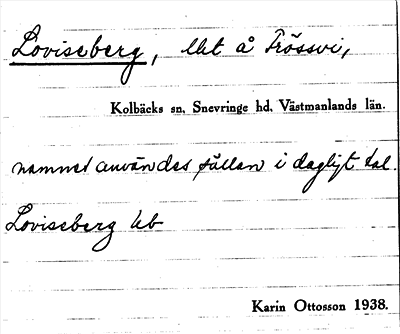 Loviseberg, lht å Trössvi,
Kolbäcks sn. Snevringe hd. Västmanlands län.
namnet användes sällan i dagligt tal.
Loviseberg kb
Karin Ottosson 1938.